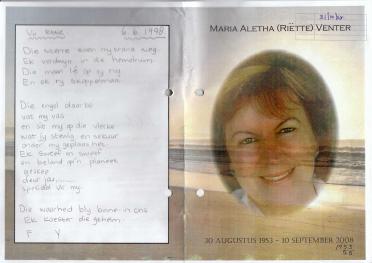 Vir Riëtte 6.6.1998.
Die sterre
Ek verdwyn in die hemelruim
Die maan lê op sy rug
En ek ry skoppelmaai
Die engel daarbo
vat my vas
en sit my op die vlerke
wat sy stewig en seker
onder my geplaas het.
Ek sweef en sweef
en beland op 'n planeet
geskep
deur jou
spesiaal vir my.
Die waarheid bly binne-in ons
Ek koester die geheim.
F Y
MARIA ALETHA (RIËTTE) VENTER
30 AUGUSTUS 1953 - 10 SEPTEMBER 2008
1953
55